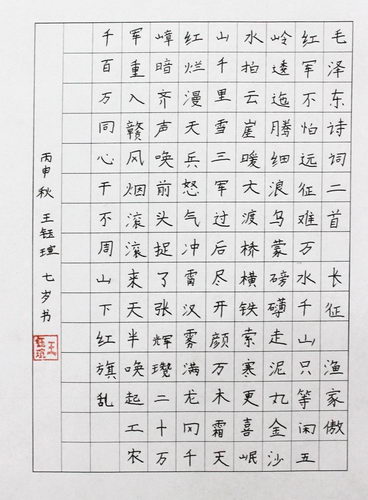 毛泽东诗词二首 长征 渔家傲
红军不怕远征难万水千山只等闲五
岭逶迤腾细浪乌蒙磅礴走泥丸金沙
水拍云崖暖大渡桥横铁索寒更喜岷
山千里雪三军过后尽开颜万木霜天
红烂漫天兵怒气冲雷汉雾满龙冈千
嶂暗齐声唤前头捉了张辉瓒二十万
军重入赣风烟滚滚来天半唤起工农
千百万同心干不周山下红旗乱
丙申秋 王钰瑄 七岁书